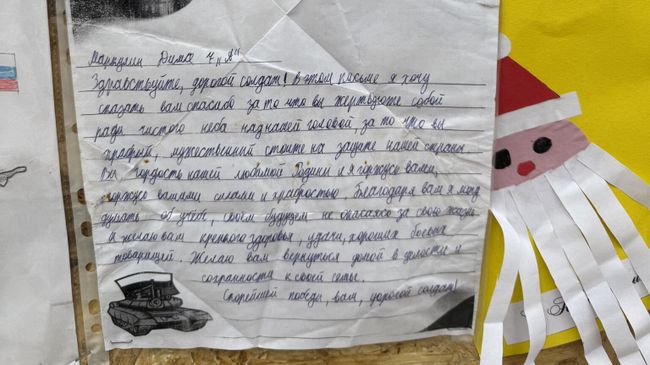 Маркулин Дима 4 "А"
Здравствуйте, дорогой солдат! В этом письме я хочу
сказать вам спасибо за то что вы жертвуете собой
ради чистого неба над нашей головой, за то что вы
храбрый, мужественный стоите на защите нашей страны
Вы гордость нашей любимой Родины и я горжусь вами,
горжусь вашими силами и храбростью. Благодаря вам я могу
думать об учебе, своем будущем не опасаясь за свою жизнь
Я желаю вам крепкого здоровья, удачи, хороших боевых
товарищей. Желаю вам вернуться домой в целости и
сохранности к своей семье.
Скорейшей победы, вам, дорогой солдат!